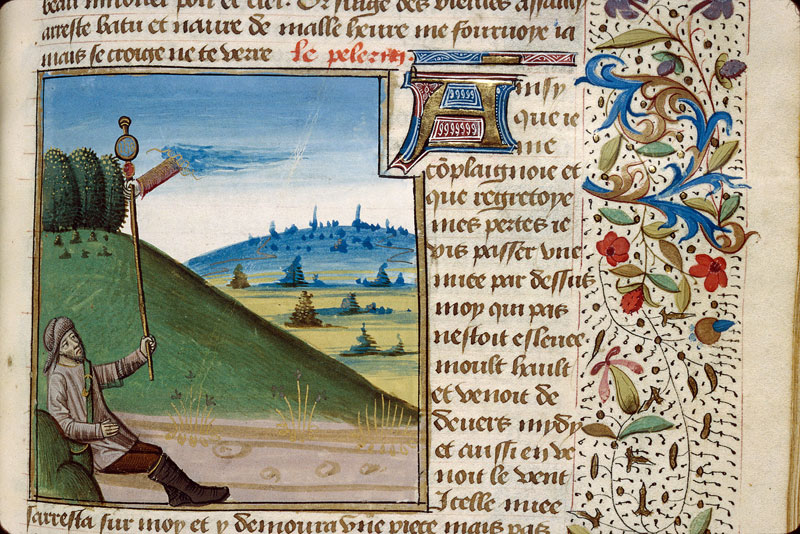 beau mirouer poli et cler. Or
arreste batu et navre de malle heure me fourvoye ia
mais se croige ne te verre le pelerin
Ainsy
que ie
me
cōplaignoie et
que regretoye
mes pertes ie
vis passer vne
nuee par dessus
moy qui pas
nestoit esleuee
moult hault
et venoit de
deuers mydy
et aussi en ve
noit le vent
Icelle nuee
sarresta sur moy et y demoura vne piece mais pas